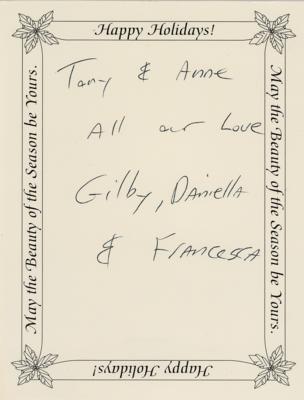 Happy Holidays!
Tony & Anne
All our Love
Gilby, Daniella
& Francesca
May the Beauty of the Season be Yours.
May the Beauty of the Season be Yours.
Happy Holidays!